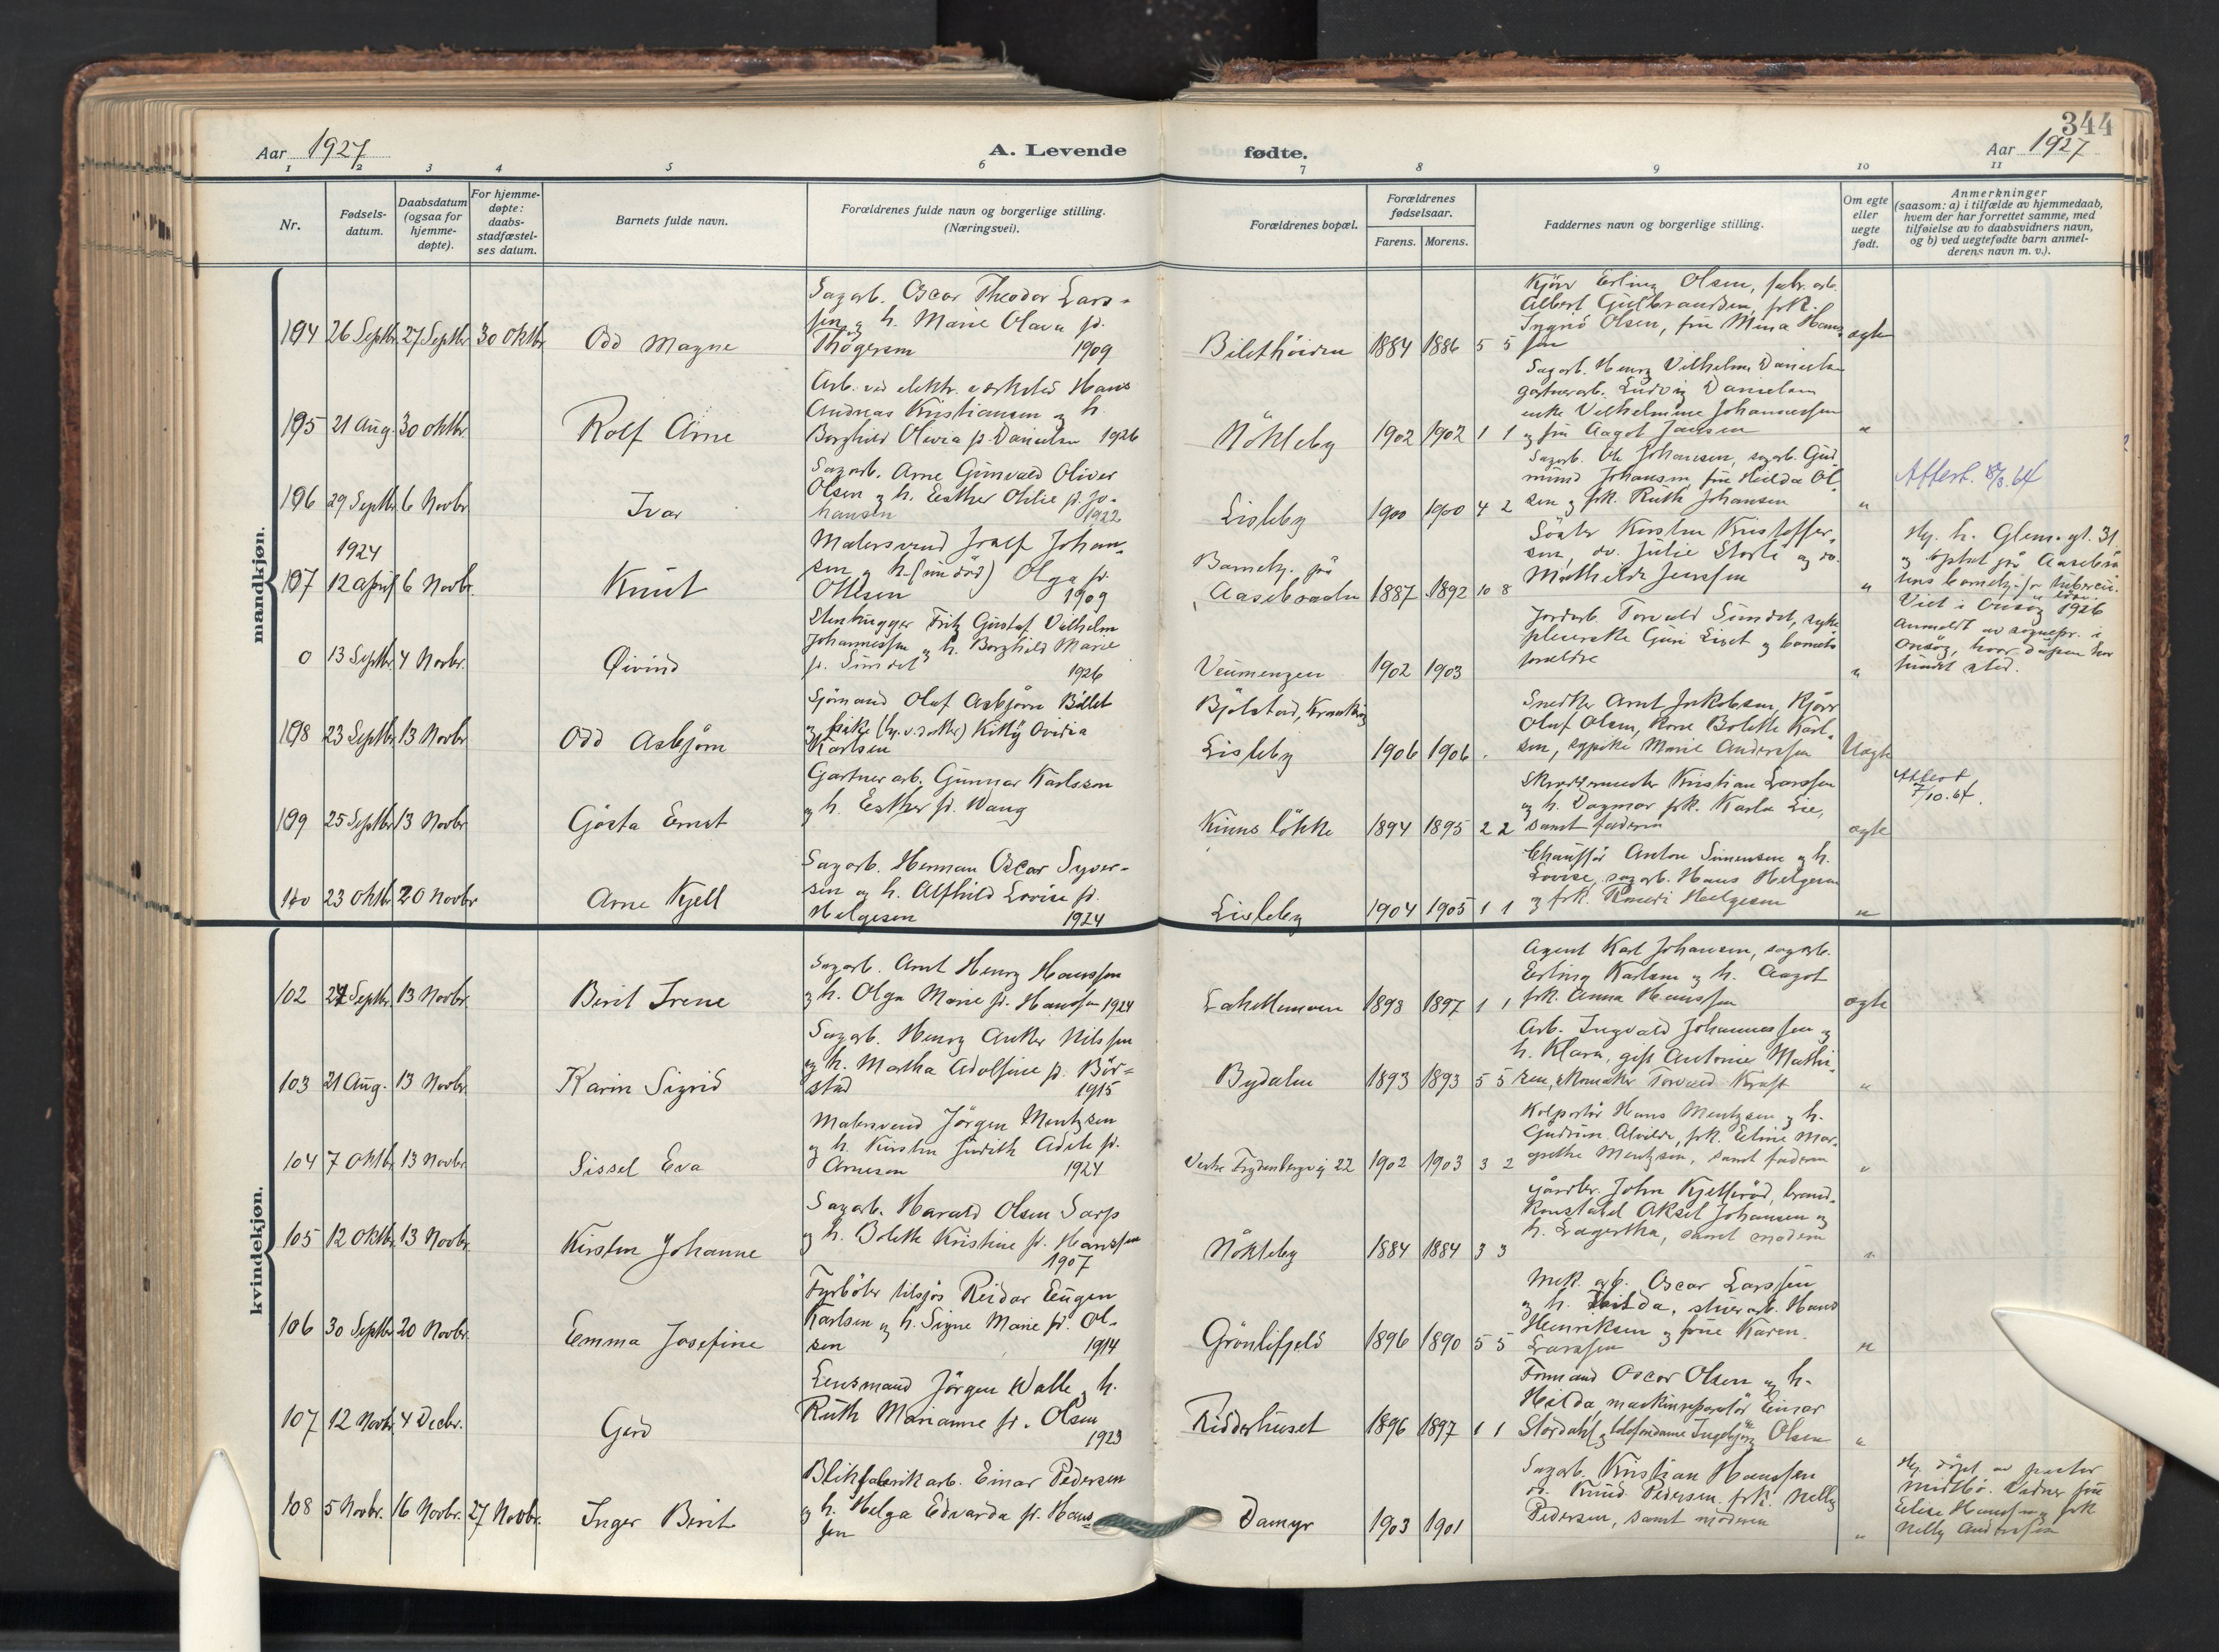 344
Aar 1927
A. Levende
fødte.
Aar 1927
1 2 3 4 5 6 7 8 9 10 11
Nr.
Fødsels-
datum.
Daabsdatum
(ogsaa for
hjemme-
døpte).
For hjemme-
døpte:
daabs-
stadfæstel-
ses datum.
Barnets fulde navn.
Forældrenes fulde navn og borgerlige stilling.
(Næringsvei).
Forældrenes bopæl.
Forældrenes
fødselsaar.
Farens. Morens.
Faddernes navn og borgerlige stilling.
Om egte
eller
uegte
født.
Anmerkninger
(saasom: a) i tilfælde av hjemmedaab,
hvem der har forrettet samme, med
tilføielse av to daabsvidners navn,
og b) ved uegtefødte barn anmel-
derens navn m. v.).
mandkjøn.
194 26 Septbr. 27 Septbr. 30 Oktbr. Odd Magne
Sagarb. Oscar Theodor Lars-
sen og h. Marie Olava f.
Thøgersen 1909
Bilethöiden 1884 1886 5 5
Kjörer Erling Olsen, fabr. arb.
Albert Gulbrandsen, frk.
Ingrid Olsen, fru Mina Hans-
sen
egte
195 21 Aug. 30 Oktbr. Rolf Arne
Arb. ved elektr. verksted Hans
Andreas Kristiansen og h.
Borghild Olivia f. Danielsen 1926
Nökleby 1902 1902 1 1
Sagarb. Henry Vilhelm Danielsen
gartnerarb. Ludvig Danielsen
enke Vilhelmine Johannessen
og fru Aagot Jansen
"
196 29 Septbr. 6 Novbr. Ivar
Sagarb. Arne Gunvald Oliver
Olsen og h. Esther Otilie f. Jo-
hansen 1922
Lisleby 1900 1900 4 2
Sagarb. Ole Johansen, sagarb. Gud-
mund Johansen, fru Hilda Ol-
sen og frk. Ruth Johansen
"
Attest. 8/3.64
1924
197 12 April 6 Novbr. Knut
Malersvend Josef Johan-
sen og h. (nu död) Olga f.
Ottesen 1909
Barnehj. på
Aasebraaten 1887 1892 10 8
Söster Kirsten Kristoffer-
sen, do. Julie Storli og do.
Mathilde Jenssen
"
Hj. h. Glem.gt. 31
0 13 Septbr. 4 Novbr. Øivind
Stenhugger Fritz Gustaf Vilhelm
Johannessen og h. Borghild Marie
f. Sundet 1926
Veumengen 1902 1903
Jordarb. Torvald Sundet, syke
pleierske Guri Liset og barnets
foreldre
"
Viet i Onsöy 1926
Anmeldt av sognepr. i
Onsöy, hvor dåpen har
fundet sted.
198 23 Septbr. 13 Novbr. Odd Asbjörn
Sjömand Olaf Asbjörn Billet
og pike (hj. v. søster) Kitty Ovidia
Karlsen
Bjölstad, Kraakeröy
Lisleby 1906 1906
Snedker Arnt Jakobsen, Kjörer
Olaf Olsen, Kone Bolette Karl-
sen, sypike Marie Anderssen
Uegte
199 25 Septbr. 13 Novbr. Gösta Ernst
Gartnerarb. Gunnar Karlsson
og h. Esther f. Wang
Kinnslökke 1894 1895 2 2
Skreddermester Kristian Larssen
og h. Dagmar frk. Karla Lie,
samt faderen
egte
Attest
7/10.64.
23 Oktbr. 20 Novbr. Arne Kjell
Sagarb. Herman Oscar Syver-
sen og h. Alfhild Lovise f.
Helgesen 1924
Lisleby 1904 1905 1 1
Chauffør Anton Simensen og h.
Lovise, sagarb. Hans Helgesen
og frk. Helgesen
"
kvindekjøn.
102 Septbr. 13 Novbr. Berit Irene
Sagarb. Arnt Henry Hanssen
og h. Olga Marie f. Hanssen 1924
1898 1897 1 1
Agent Karl Johansen, sagarb.
Erling Karlsen og h. Aagot
frk. Anna Hanssen
egte
103 21 Aug. 13 Novbr. Karin Sigrid
Sagarb. Henry Anker Nilssen
og h. Martha Adolfine f. Bör-
stad 1915
Bydalen 1893 1893 5 5
Arb. Ingvald Johannessen og
h. Klara, gift Antonie Mathi-
sen, skomaker Torvald Kraft
"
104 7 Oktbr. 13 Novbr. Sissel Eva
Malersvend Jörgen Mentzsen
og h. Kirsten Judith Adele f.
Arnesen 1924
Vestre Frydenbergvej 22 1902 1903 3 2
Kolportör Hans Mentzsen og h.
Gudrun Alvilde, frk. Eline Mar-
grethe Mentzsen, samt faderen
"
105 12 Oktbr. 13 Novbr. Kirsten Johanne
Sagarb. Harald Olsen Sarp
og h. Bolette Kristine f. Hanssen
1907
Nökleby 1884 1884 3 3
Gårdbr. John Kjelleröd, brand-
konstabel Aksel Johansen og
h. Lagertha, samt moderen
"
106 30 Septbr. 20 Novbr. Emma Josefine
Fyrböter tilsjös Reidar Eugen
Karlsen og h. Signe Marie f. Ol-
sen 1914
Grönlifjeld 1896 1890 5 5
Mek. arb. Oscar Larssen
og h. Hilda, stuerarb. Hans
Henriksen og frue Karen
Larssen
"
107 12 Novbr. 4 Decbr. Gerd
Lensmand Jörgen Walle og h.
Ruth Marianne f. Olsen
1923
Ridderhuset 1896 1897 1 1
Formand Oscar Olsen og h.
Hilda maskinreparatör Einar
Stordahl og telefondame Ingebjörg Olsen
"
108 5 Novbr. 16 Novbr. 27 Novbr. Inger Berit
Blikfabrikarb. Einar Pedersen
og h. Helga Edvarda f. Hans-
sen
Damyr 1903 1901
Sagarb. Kristian Hanssen
do. Knud Pedersen frk. Nelly
Pedersen, samt moderen
"
Hj. döpt av pastor
Midtbö. Vidner fru
Elise Hanssen og frk
Nelly Anderssen